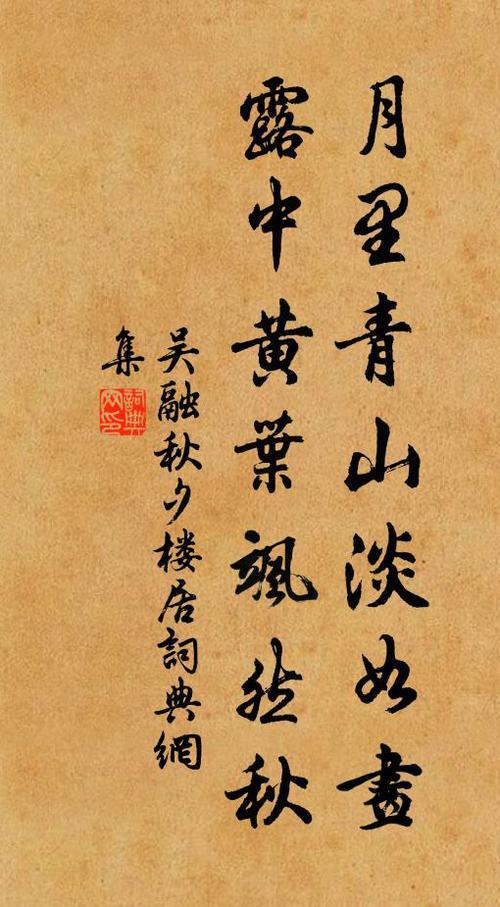 月里青山淡如畫
露中黃葉颯然秋
吳融秋夕楼居詞典網
集
詞典網印